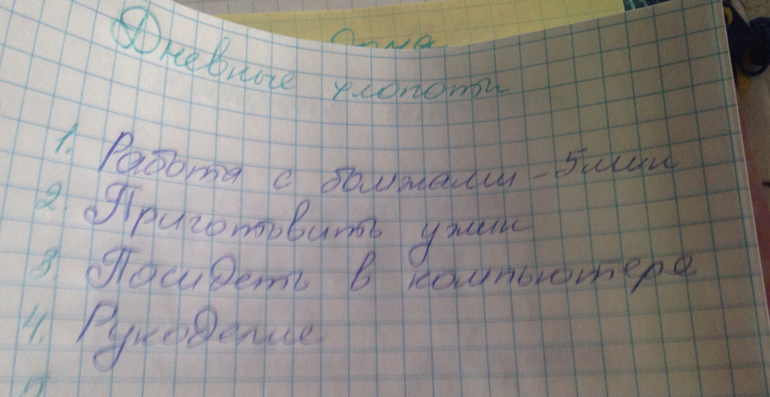 Дневные хлопоты
1. Работа с бомжами - 5 мин
2. Приготовить ужин
3. Посидеть в компьютере
4. Рукоделие